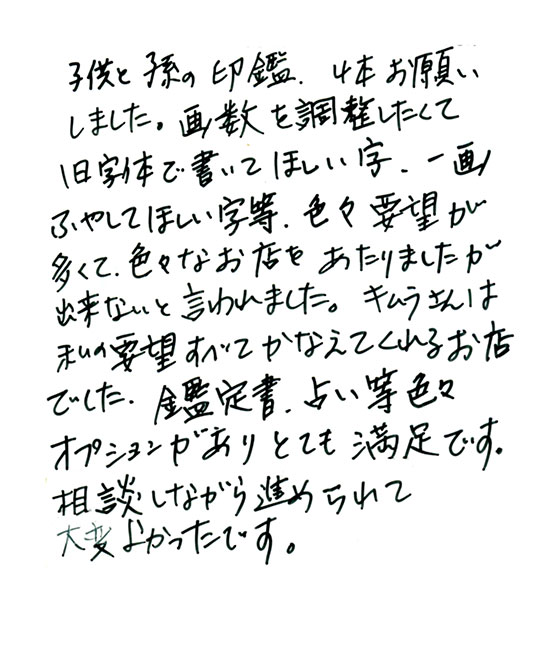 子供と孫の印鑑、4本お願い
しました。画数を調整したくて
旧字体で書いてほしい字、一画
ふやしてほしい字等、色々要望が
多くて、色々なお店をあたりましたが
出来ないと言われました。キムラさんは
私の要望すべてかなえてくれるお店
でした、鑑定書、占い等色々
オプションがありとても満足です。
相談しながら進められて
大変よかったです。